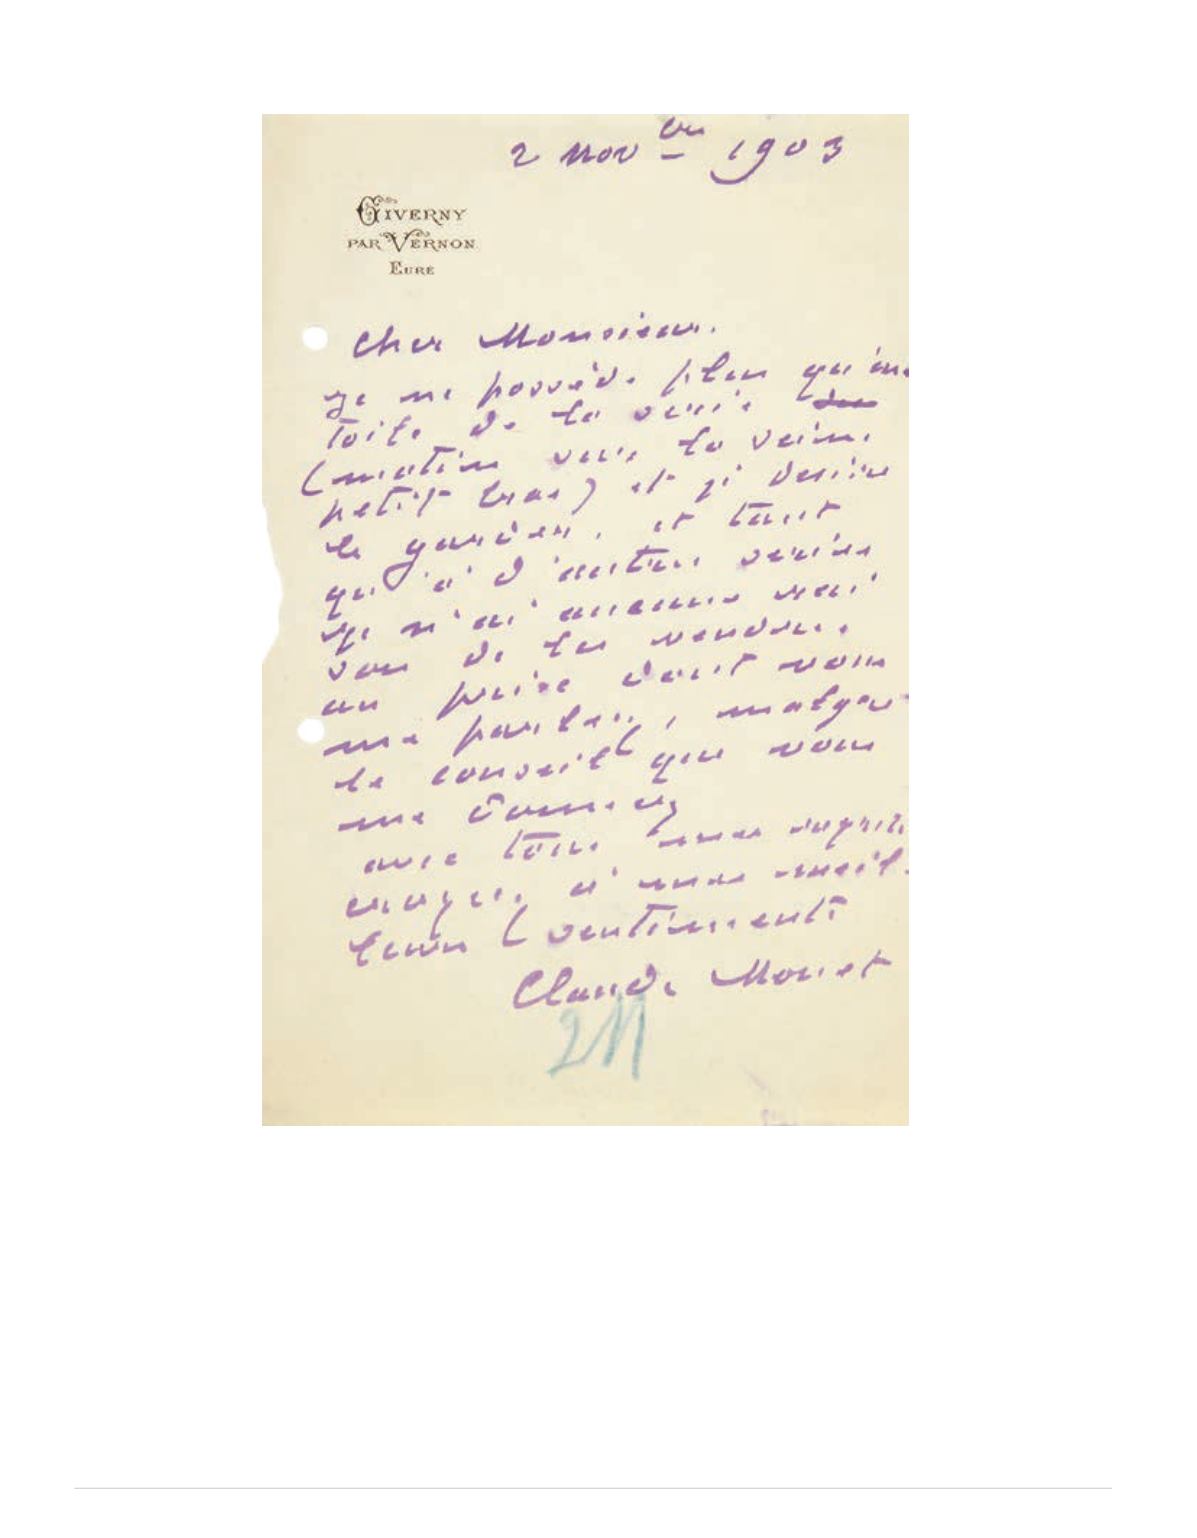 2 nov bre 1903
GIVERNY
PAR VERNON
EURE
Cher Monsieur.
je ne possède plus qu'une
toile de la série des
(matin sur la Seine
petit bras) et je désire
la garder. et tant
qu'à d'autres séries
je n'ai aucune rai
son de les vendre
au prix dont vous
me parlez, malgré
le conseil que vous
me donniez
avec tous mes regrets
croyez à mes meil
leurs sentiments
Claude Monet